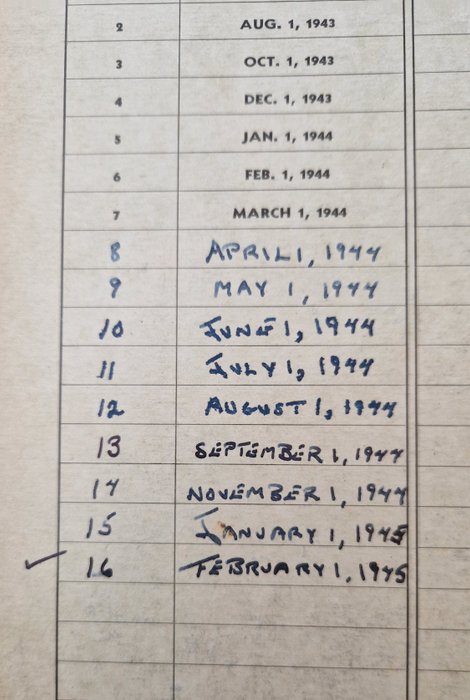 2 AUG. 1, 1943
3 OCT. 1, 1943
4 DEC. 1, 1943
5 JAN. 1, 1944
6 FEB. 1, 1944
7 MARCH 1, 1944
8 APRIL 1, 1944
9 MAY 1, 1944
10 JUNE 1, 1944
11 JULY 1, 1944
12 AUGUST 1, 1944
13 SEPTEMBER 1, 1944
14 NOVEMBER 1, 1944
15 JANUARY 1, 1945
✓ 16 FEBRUARY 1, 1945